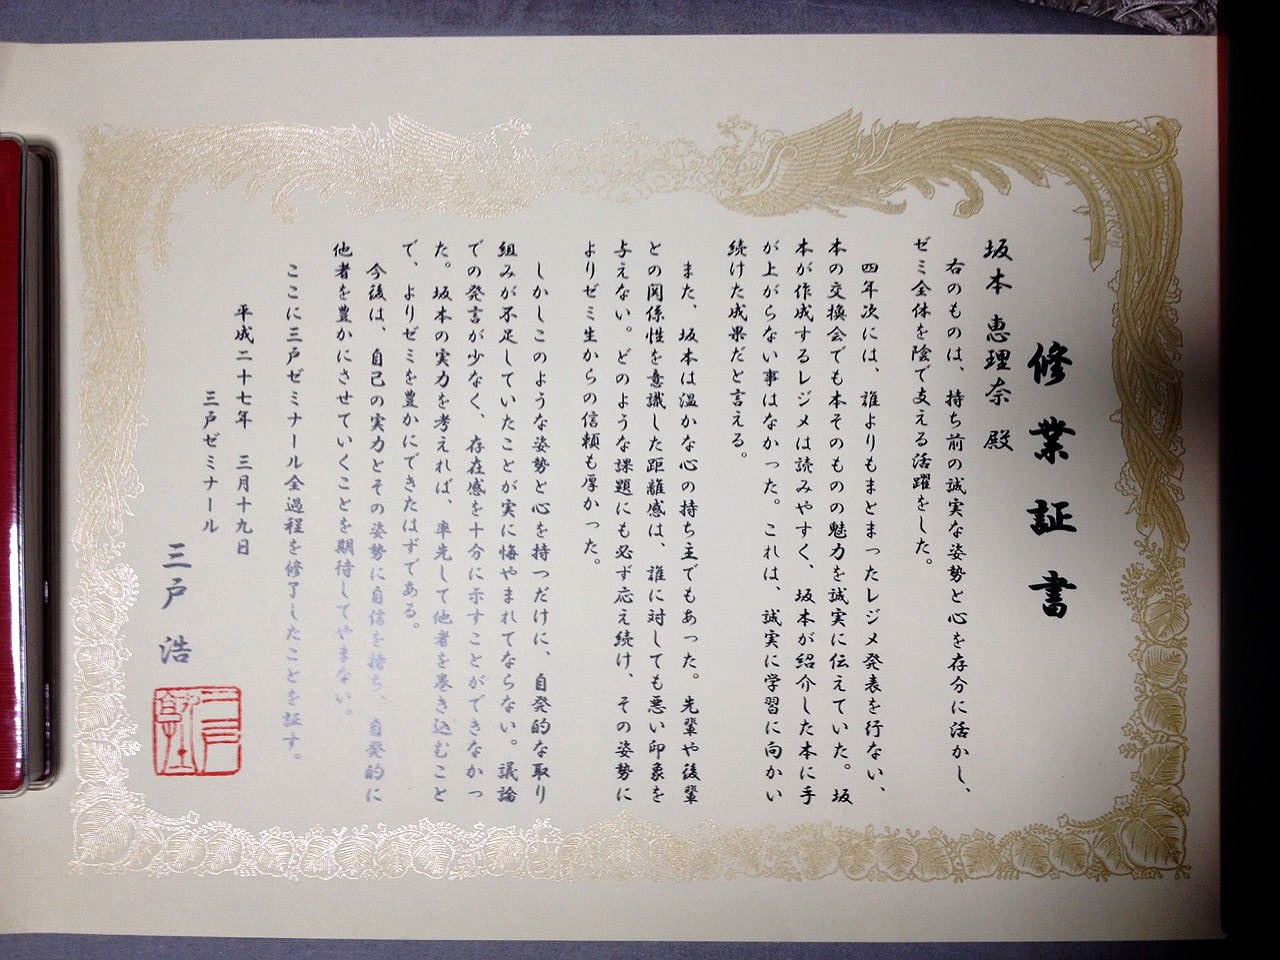 修業証書
坂本 恵理奈 殿
右のものは、持ち前の誠実な姿勢と心を存分に活かし、
ゼミ全体を陰で支える活躍をした。
四年次には、誰よりもまとまったレジメ発表を行ない、
本の交換会でも本そのものの魅力を誠実に伝えていた。坂
本が作成するレジメは読みやすく、坂本が紹介した本に手
が上がらない事はなかった。これは、誠実に学習に向かい
続けた成果だと言える。
また、坂本は温かな心の持ち主でもあった。先輩や後輩
との関係性を意識した距離感は、誰に対しても悪い印象を
与えない。どのような課題にも必ず応え続け、その姿勢に
よりゼミ生からの信頼も厚かった。
しかしこのような姿勢と心を持つだけに、自発的な取り
組みが不足していたことが実に悔やまれてならない。議論
での発言が少なく、存在感を十分に示すことができなかっ
た。坂本の実力を考えれば、率先して他者を巻き込むこと
で、よりゼミを豊かにできたはずである。
今後は、自己の実力とその姿勢に自信を持ち、自発的に
他者を豊かにさせていくことを期待してやまない。
ここに三戸ゼミナール全過程を修了したことを証す。
平成二十七年 三月十九日
三戸ゼミナール
三戸 浩